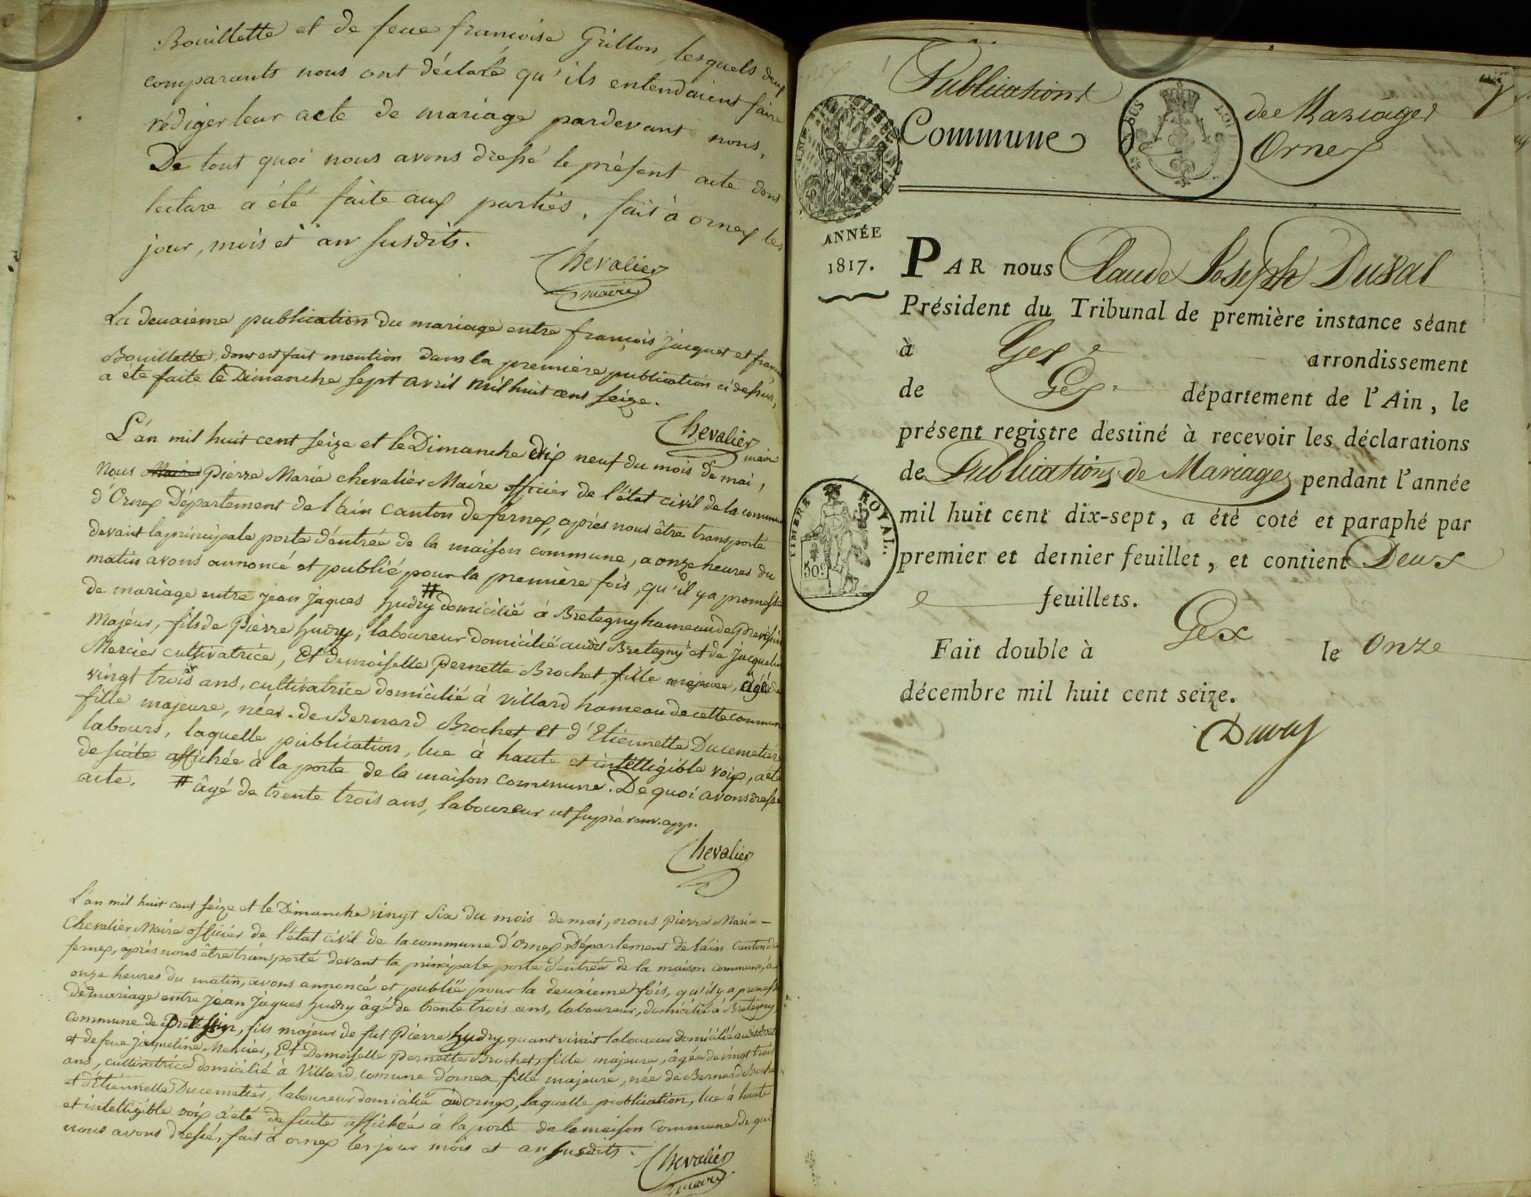 Bouillette et de feue francoise Grillon, lesquels deux
comparants nous ont déclaré qu'ils entendaient faire
rediger leur acte de mariage pardevant nous,
De tout quoi nous avons dressé le présent acte dont
lecture a été faite aux parties, fait à ornex les
jour, mois et an susdits.
Chevalier
maire
La deuxieme publication du mariage entre françois jacquet et
Bouillette, dont est fait mention dans la première publication ci dessus,
a été faite le Dimanche sept avril mil huit cent seize.
Chevalier
maire
L'an mil huit cent seize et le Dimanche dix neuf du mois de mai,
nous pierre Marie chevalier Maire officier de l'état civil de la commune
d'Ornex Département de l'ain Canton de fernex, après nous être transporté
devant la principale porte d'entrée de la maison commune, a onze heures du
matin avons annoncé et publié pour la première fois, qu'il y a promesse
de mariage entre jean jaques hudry # domicilié à Bretegny hameau de prevessin
majeur, fils de Pierre hudry, laboureur domicilié audit Bretegny et de jaqueline
Mercier cultivatrice, Et demoiselle pernette Brochet, fille majeure, âgée de
vingt trois ans, cultivatrice domicilié à villard hameau de cette commune
fille majeure, née de Bernard Brochet et d'Etiennette Ducemetier
labours, laquelle publication, lue à haute et intelligible voix, a été
de suite affichée à la porte de la maison commune. De quoi avons dressé
acte. # âgé de trente trois ans, laboureur
Chevalier
L'an mil huit cent seize et le Dimanche vingt six du mois de mai, nous pierre Marie
Chevalier Maire officier de l'état civil de la commune d'Ornex Département de l'ain canton de
fernex, après nous être transporté devant la principale porte d'entrée de la maison commune, à
onze heures du matin, avons annoncé et publié pour la deuxieme fois, qu'il y a promesse
de mariage entre jean jaques hudry âgé de trente trois ans, laboureur, domicilié à Bretegny
commune de prevessin, fils majeur de fut pierre hudry, quant vivait laboureur domicilié audit
et de feue jaqueline Mercier, Et Demoiselle pernette Brochet, fille majeure, âgée de vingt trois
ans, cultivatrice domicilié à villard comune d'ornex fille majeure, née de Bernard Brochet
et d'Etiennette Ducemetier, laboureur domicilié audit ornex, laquelle publication, lue à haute
et intelligible voix a été de suite affichée à la porte de la maison Commune de quoi
nous avons dressé, fait à ornex les jour mois et an susdits.
Chevalier
maire
Publications de Mariages
Commune de Ornex
TIMBRE ROYAL
ANNÉE
1817.
PAR nous Claude Joseph Duval
Président du Tribunal de première instance séant
à Gex arrondissement
de Gex département de l'Ain, le
présent registre destiné à recevoir les déclarations
de Publications de Mariages pendant l'année
mil huit cent dix-sept, a été coté et paraphé par
premier et dernier feuillet, et contient Deux
feuillets.
Fait double à Gex le Onze
décembre mil huit cent seize.
Duval